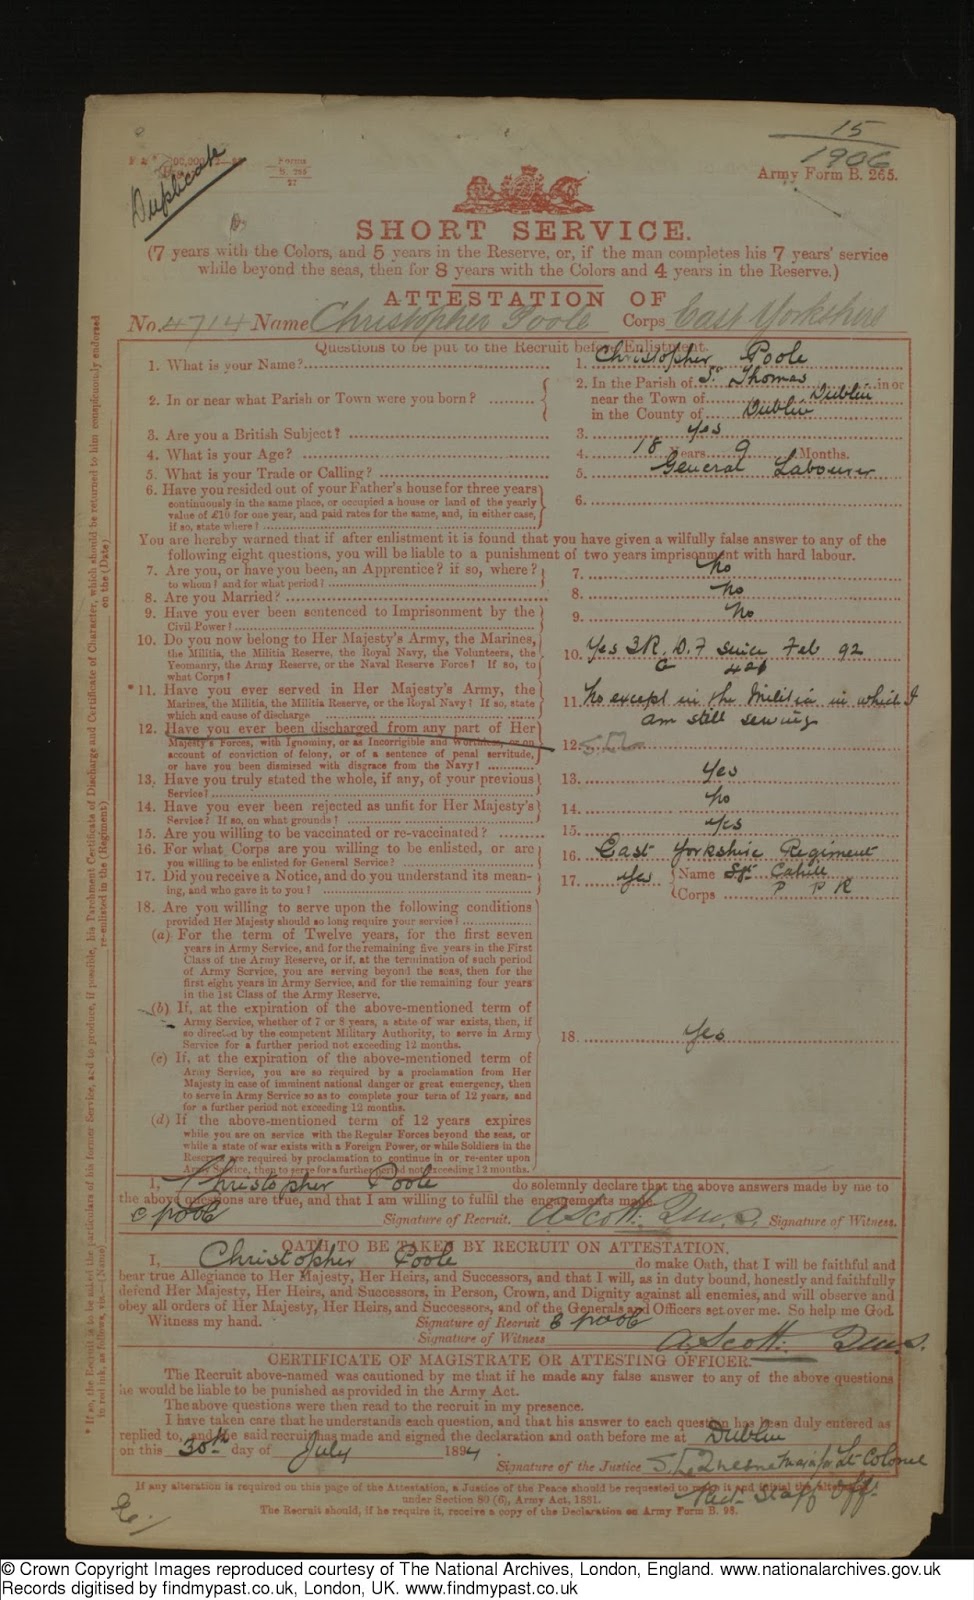 15
1906
Duplicate
Forms
B. 265
27
Army Form B. 265.
SHORT SERVICE.
(7 years with the Colors, and 5 years in the Reserve, or, if the man completes his 7 years' service
while beyond the seas, then for 8 years with the Colors and 4 years in the Reserve.)
ATTESTATION OF
No. 4714 Name Christopher Poole Corps East Yorkshire
Questions to be put to the Recruit before Enlistment.
1. What is your Name? 1. Christopher Poole
2. In or near what Parish or Town were you born? 2. In the Parish of St Thomas in or
near the Town of Dublin
in the County of Dublin
3. Are you a British Subject? 3. Yes
4. What is your Age? 4. 18 Years 9 Months.
5. What is your Trade or Calling? 5. General Labourer
6. Have you resided out of your Father's house for three years 6.
continuously in the same place, or occupied a house or land of the yearly
value of £10 for one year, and paid rates for the same, and, in either case,
if so, state where?
You are hereby warned that if after enlistment it is found that you have given a wilfully false answer to any of the
following eight questions, you will be liable to a punishment of two years imprisonment with hard labour.
7. Are you, or have you been, an Apprentice? if so, where? 7. No
to whom? and for what period?
8. Are you Married? 8. No
9. Have you ever been sentenced to Imprisonment by the 9. No
Civil Power?
10. Do you now belong to Her Majesty's Army, the Marines, 10. Yes 3 R. D. F since Feb 92
the Militia, the Militia Reserve, the Royal Navy, the Volunteers, the
Yeomanry, the Army Reserve, or the Naval Reserve Force? If so, to
what Corps?
*11. Have you ever served in Her Majesty's Army, the 11. No except in the Militia in which I
Marines, the Militia, the Militia Reserve, or the Royal Navy? If so, state am still serving
which and cause of discharge
12. Have you ever been discharged from any part of Her 12.
Majesty's Forces, with Ignominy, or as Incorrigible and Worthless, or on
account of conviction of felony, or of a sentence of penal servitude,
or have you been dismissed with disgrace from the Navy?
13. Have you truly stated the whole, if any, of your previous 13. Yes
Service?
14. Have you ever been rejected as unfit for Her Majesty's 14. No
Service? If so, on what grounds?
15. Are you willing to be vaccinated or re-vaccinated? 15. Yes
16. For what Corps are you willing to be enlisted, or are 16. East Yorkshire Regiment
you willing to be enlisted for General Service?
17. Did you receive a Notice, and do you understand its mean- 17. Yes Name Sgt Cahill
ing, and who gave it to you? Corps P P R
18. Are you willing to serve upon the following conditions
provided Her Majesty should so long require your service?
(a) For the term of Twelve years, for the first seven
years in Army Service, and for the remaining five years in the First
Class of the Army Reserve, or if, at the termination of such period
of Army Service, you are serving beyond the seas, then for the
first eight years in Army Service, and for the remaining four years
in the 1st Class of the Army Reserve.
(b) If, at the expiration of the above-mentioned term of
Army Service, whether of 7 or 8 years, a state of war exists, then, if
so directed by the competent Military Authority, to serve in Army 18. Yes
Service for a further period not exceeding 12 months.
(c) If, at the expiration of the above-mentioned term of
Army Service, you are so required by a proclamation from Her
Majesty in case of imminent national danger or great emergency, then
to serve in Army Service so as to complete your term of 12 years, and
for a further period not exceeding 12 months.
(d) If the above-mentioned term of 12 years expires
while you are on service with the Regular Forces beyond the seas, or
while a state of war exists with a Foreign Power, or while Soldiers in the
Reserve are required by proclamation to continue in or re-enter upon
Army Service, then to serve for a further period not exceeding 12 months.
I, Christopher Poole do solemnly declare that the above answers made by me to
the above questions are true, and that I am willing to fulfil the engagements made.
C poole Signature of Recruit. A Scott. Signature of Witness.
OATH TO BE TAKEN BY RECRUIT ON ATTESTATION.
I, Christopher Poole do make Oath, that I will be faithful and
bear true Allegiance to Her Majesty, Her Heirs, and Successors, and that I will, as in duty bound, honestly and faithfully
defend Her Majesty, Her Heirs, and Successors, in Person, Crown, and Dignity against all enemies, and will observe and
obey all orders of Her Majesty, Her Heirs, and Successors, and of the Generals and Officers set over me. So help me God.
Witness my hand. Signature of Recruit C poole
Signature of Witness A Scott.
CERTIFICATE OF MAGISTRATE OR ATTESTING OFFICER.
The Recruit above-named was cautioned by me that if he made any false answer to any of the above questions
he would be liable to be punished as provided in the Army Act.
The above questions were then read to the recruit in my presence.
I have taken care that he understands each question, and that his answer to each question has been duly entered as
replied to, and the said recruit has made and signed the declaration and oath before me at Dublin
on this 30th day of July 1894.
Signature of the Justice Lt Colonel
Staff Offr
If any alteration is required on this page of the Attestation, a Justice of the Peace should be requested to make it and initial the alteration
under Section 80 (6), Army Act, 1881.
The Recruit should, if he require it, receive a copy of the Declaration on Army Form B. 98.
* If so, the Recruit is to be asked the particulars of his former Service, and to produce, if possible, his Parchment Certificate of Discharge and Certificate of Character, which should be returned to him conspicuously endorsed
in red ink, as follows, viz.—(Name) re-enlisted in the (Regiment) on the (Date)
© Crown Copyright Images reproduced courtesy of The National Archives, London, England. www.nationalarchives.gov.uk
Records digitised by findmypast.co.uk, London, UK. www.findmypast.co.uk